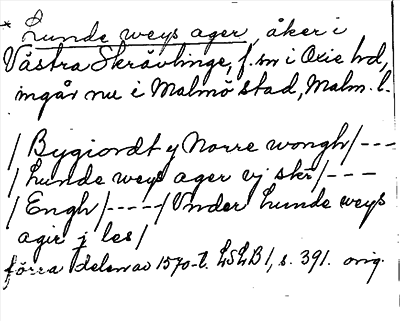 * Lunde weys ager, åker i
Västra Skrävlinge, f. sn i Oxie hd,
ingår nu i Malmö stad, Malm. l.
/ Bygiordt y Norre wongh / ---
/ Lunde weys ager vj skr̃ / ---
/ Engh / ---- / Vnder Lunde weys
agir j les /
förra delen av 1570-t. LSLB 1, s. 391. orig.